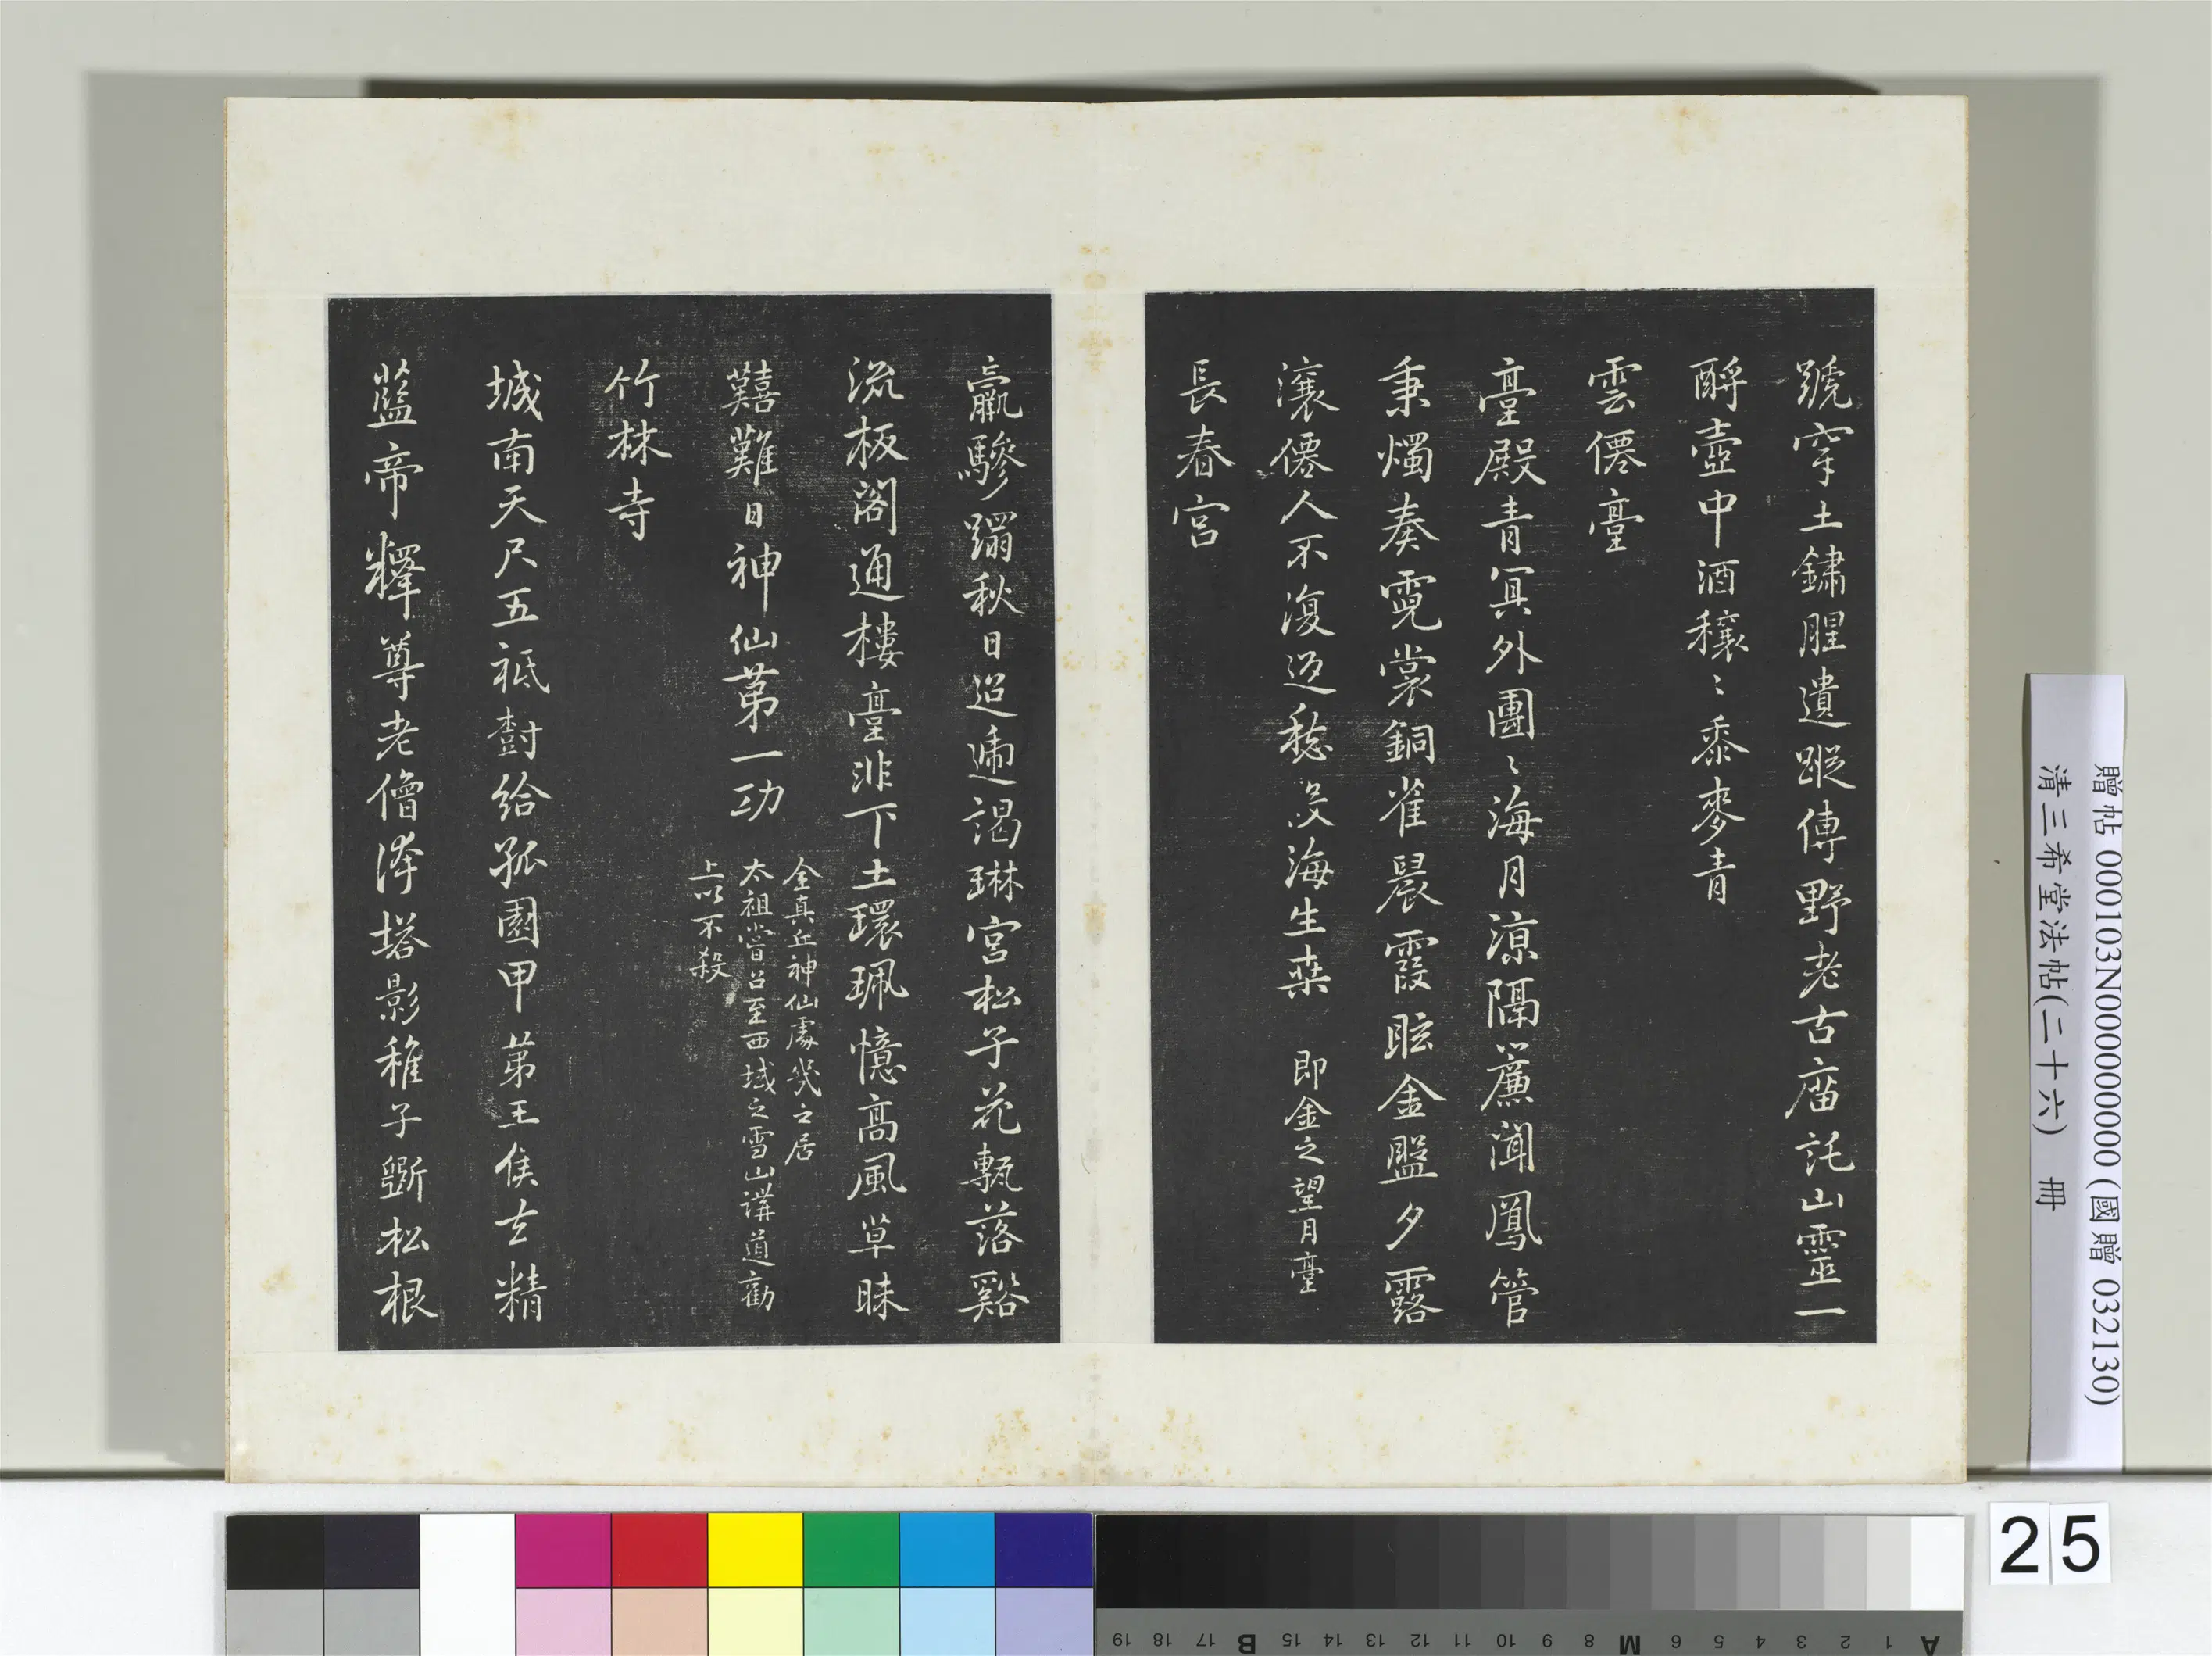 號穿土鏽腥遺蹤傳野老古廟託山靈一
酹壺中酒穰〻黍麥青
雲僊臺
臺殿青冥外團〻海月涼隔簾聞鳳管
秉燭奏霓裳銅雀晨霞眩金盤夕露
瀼僊人不復返愁沒海生桒 即金之望月臺
長春宮
羸驂躡秋日迢遞謁琳宮松子花甎落谿
流板閣通樓臺非下土環珮憶高風草昧
囏難日神仙第一功
全真丘神仙處幾之居
太祖嘗召至西域之雪山講道勸
上以不殺
竹林寺
城南天尺五祇樹給孤園甲第王侯去精
藍帝釋尊老僧浮塔影稚子斲松根
贈帖 000103N000000000 (國贈 032130)
清三希堂法帖(二十六) 冊
25
A 1 2 3 4 5 6 M 8 9 10 11 12 13 14 15 B 17 18 19